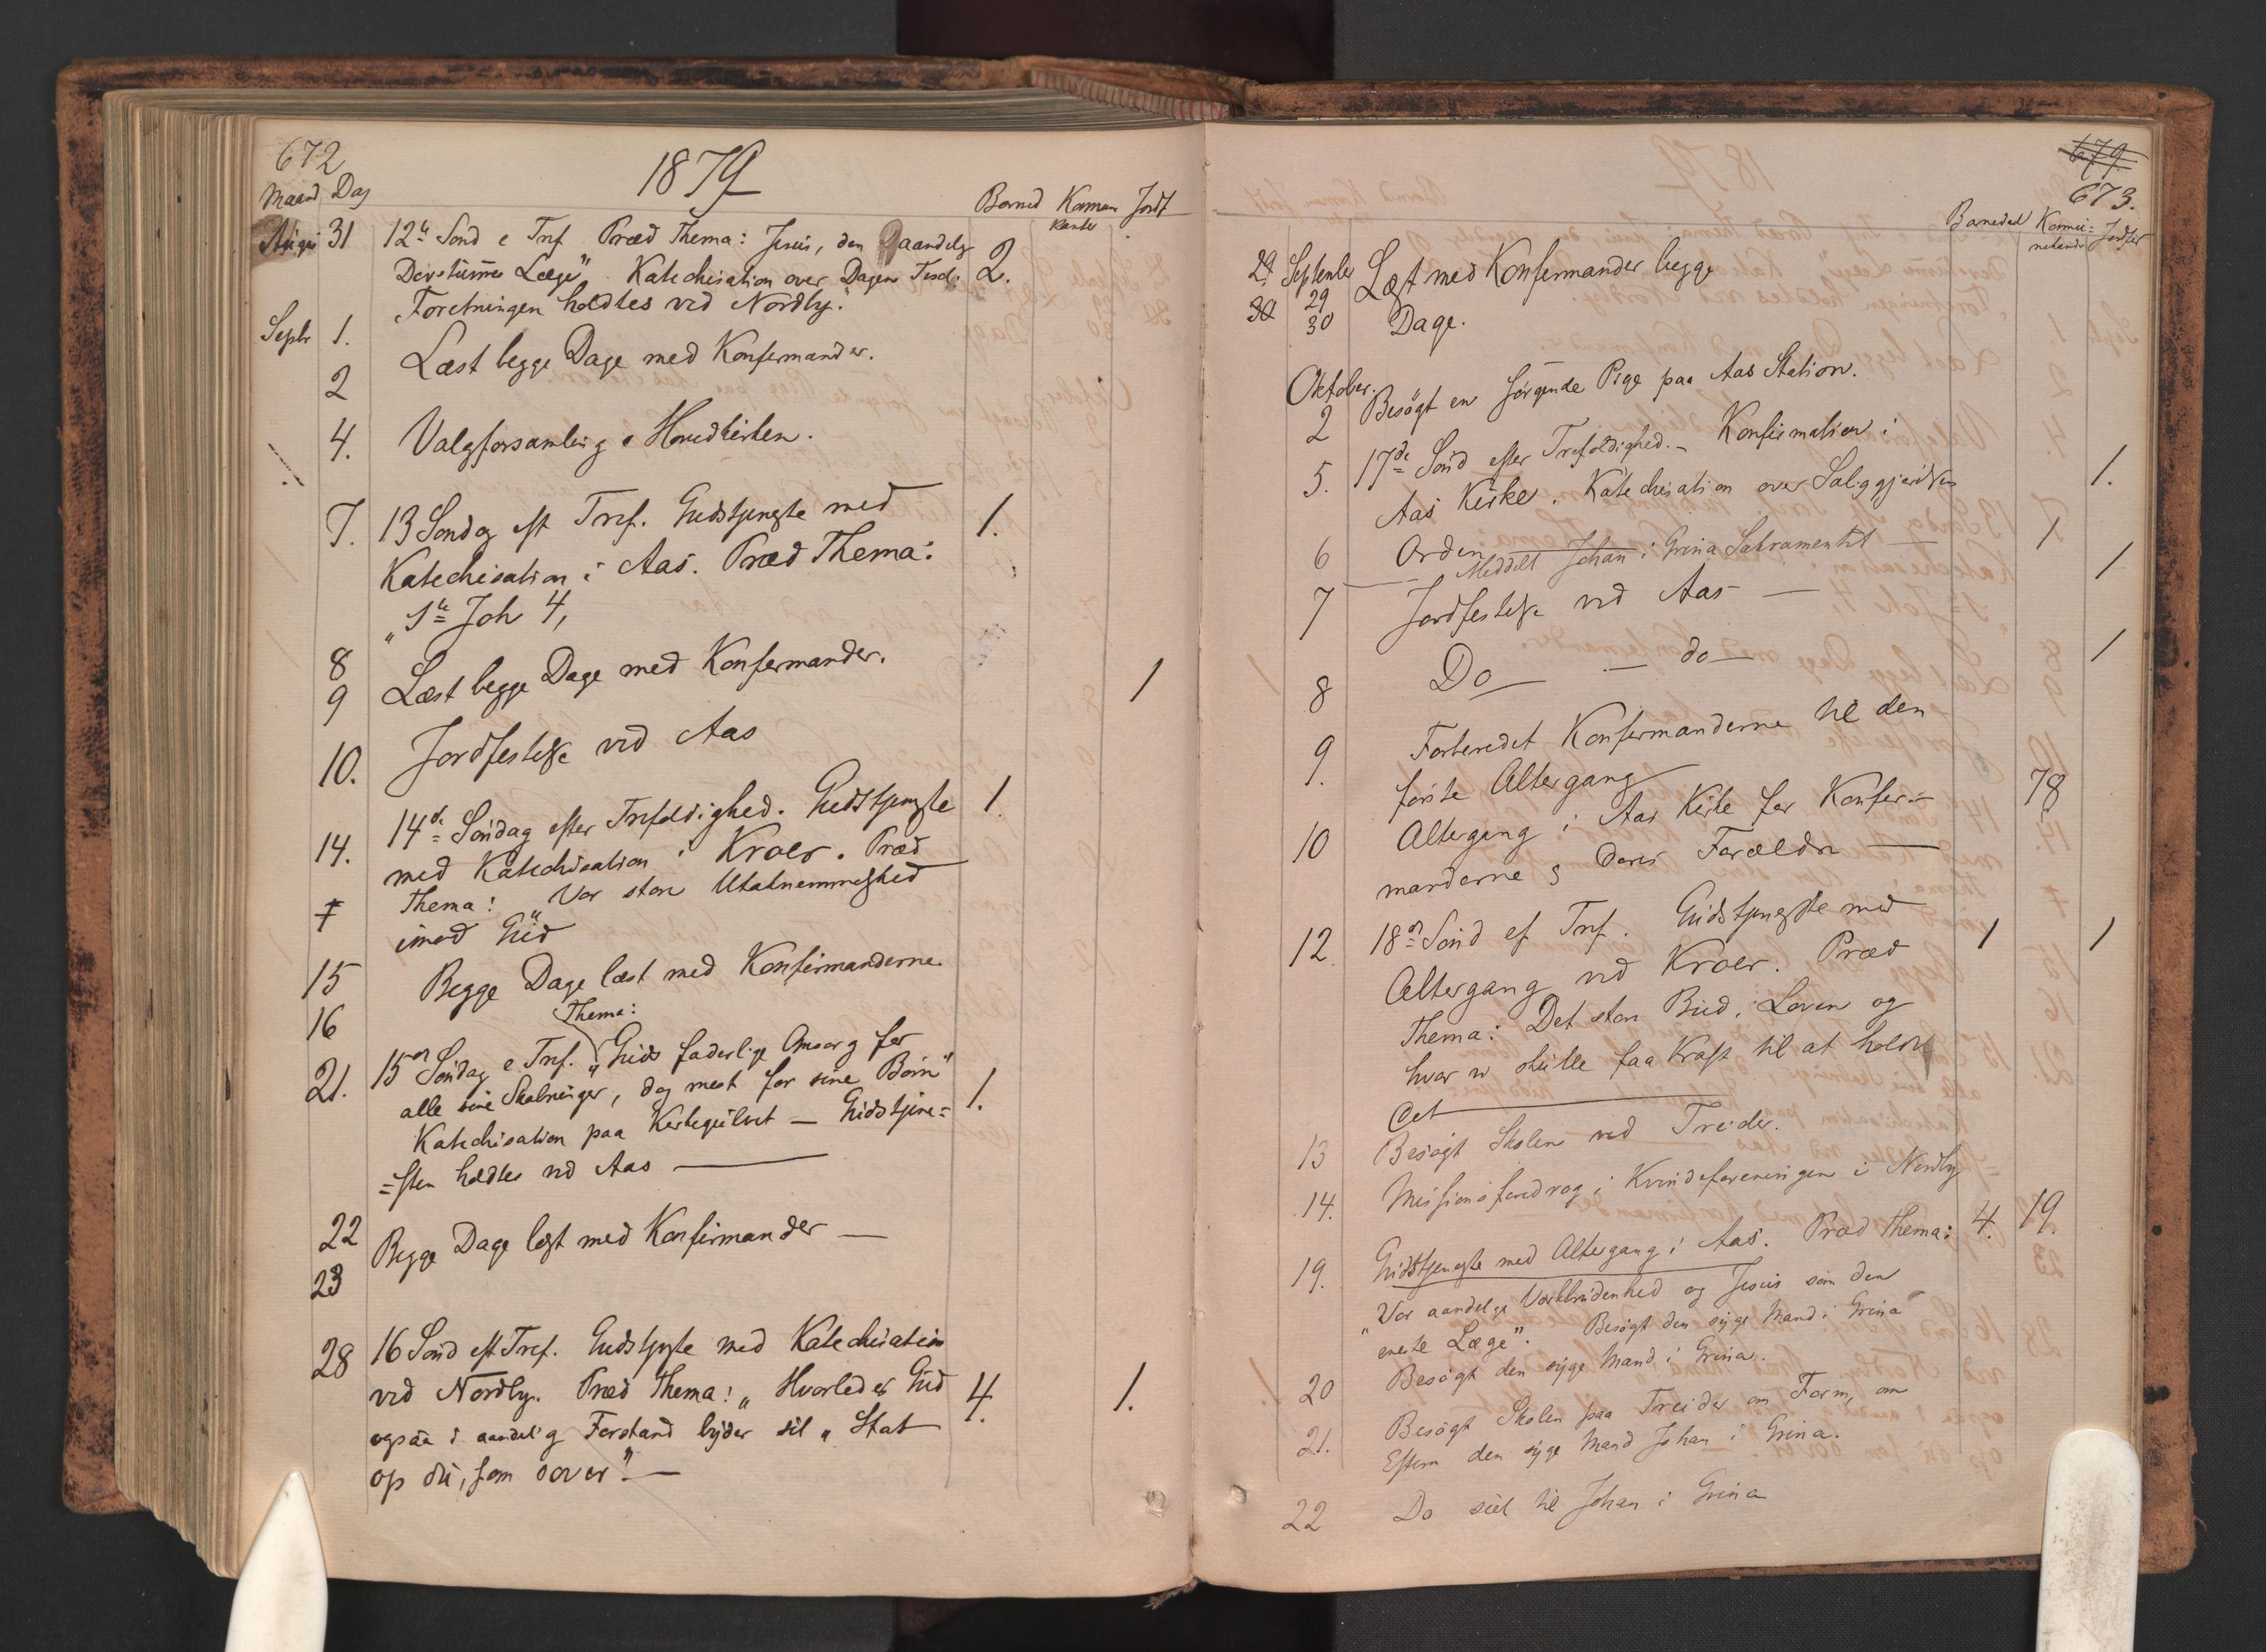 672
1879
Maand Dag Barned Kommu Jordf
kanter
August 31 12te Sönd e Tref Præd Thema: Jesus, den aandelig
Døvstumme Læge" Katechisation over Dagen
Foretningen holdtes ved Nordby. 2.
Septr 1. Læst begge Dage med Konfermander.
2
4. Valgforsamling i Hovedkirken.
7. 13 Sondag eft Tref. Gudstjeneste med 1.
Katechisation i Aas. Præd Thema:
"1te Joh 4,
8
9 Læst begge Dage med Konfermander.
10. Jordfestelse ved Aas 1
14. 14de Söndag efter Trefoldighed. Gudstjeneste 1.
med Katechisation i Kroer. Præd
7 Thema: "Vor store Utaknemmelighed
imod Gud"
15 Begge Dage læst med Konfirmanderne
16
Thema:
21. 15de Söndag e Tref. "Guds faderlige Omsorg for
alle sine Skabninger, dog mest for sine Börn"
Katechisation paa Kirkegulvet — Gudstjene= 1.
=sten holdtes ved Aas —
22 Begge Dage læst med Konfirmander —
23
28 16 Sönd eft Tref. Gudstjeneste med Katechisation
ved Nordby. Præd Thema: "Hvorledes Gud 4. 1.
ogsaa i aandelig Forstand byder til "Stat
op du, som sover" —
679.
673.
Barnedaab Kommu= Jordfer
nikander
29 September Læst med Konfermander begge
29
30 30 Dage.
Oktober.
2 Besögt en sörgende Pige paa Aas Station.
5. 17de Sönd efter Trefoldighed. – Konfirmation i
Aas Kirke. Katechisation over Saliggjørelsens 1.
6 Orden Meddelt Johan i Grina Sakramentet — 1
7 Jordfestelse ved Aas — 1
8 Do — — do — 1
9. Forberedet Konfermanderne til den
förste Altergang
10 Altergang i Aas Kirke for Konfer= 78
manderne og deres Forældre —
12. 18de Sönd ef Tref. Gudstjeneste med 1 1
Altergang ved Kroer. Præd
Thema: Det store Bud i Loven og
hvor vi skulle faa Kraft til at holde
det —
13 Besögt Skolen ved Treider.
14. Missionsforedrag i Kvindeforeningen i Nordby
19. Gudstjeneste med Altergang i Aas. Præd Thema: 4. 19.
"Vor aandelige og Jesus som den
eneste Læge". Besögt den syge Mand i Grina
20 Besögt den syge Mand i Grina.
21. Besögt Skolen paa Treider om Form, om
Efterm den syge Mand Johan i Grina.
22 Do til Johan i Grina